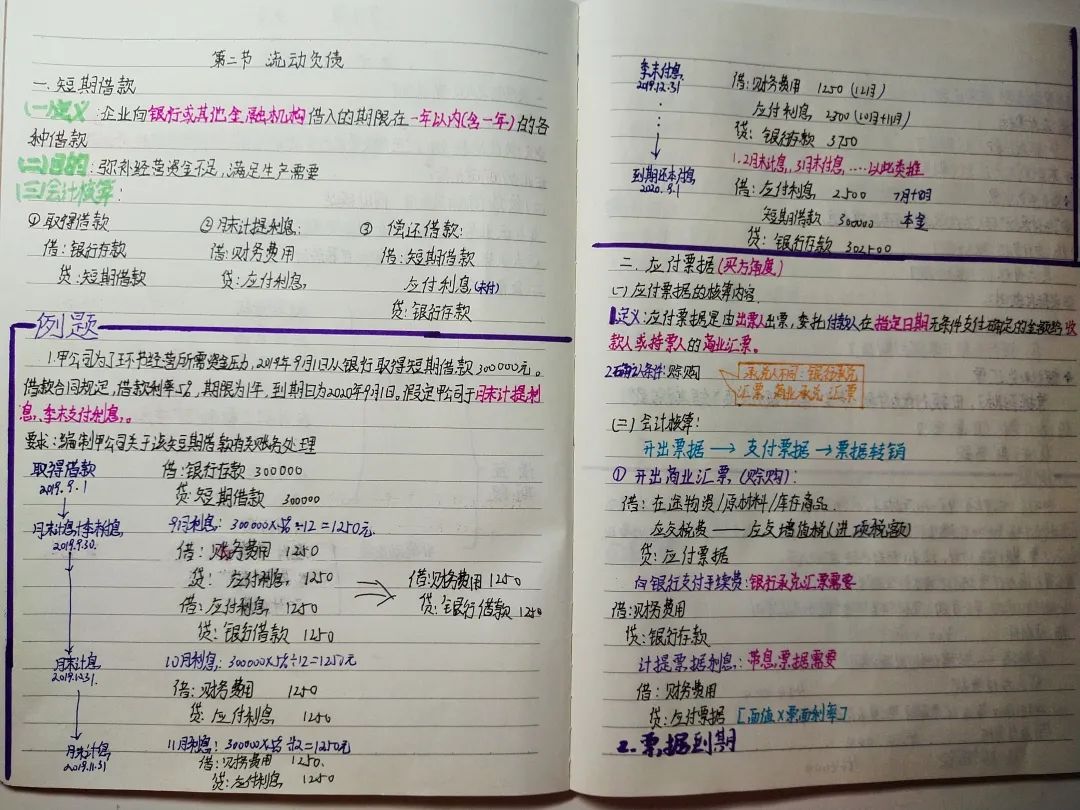 第二节 流动负债
一.短期借款
(一)定义:企业向银行或其他金融机构借入的期限在一年以内(含一年)的各
种借款
(二)目的:弥补经营资金不足,满足生产需要
(三)会计核算:
①取得借款 ②月末计提利息: ③ 偿还借款:
借:银行存款 借:财务费用 借:短期借款
贷:短期借款 贷:应付利息 应付利息(未付)
贷:银行存款
例题
1.甲公司为了环节经营所需资金压力,2019年9月1日从银行取得短期借款300000元。
借款合同规定,借款利率5%,期限为1年,到期日为2020年9月1日。假定甲公司于月末计提利
息,季末支付利息。
要求:编制甲公司关于该笔短期借款有关账务处理
取得借款 借:银行存款 300000
2019.9.1 贷:短期借款 300000
月末计息+季末付息 9月利息:300000×5%÷12=1250元.
2019.9.30. 借:财务费用 1250
贷:应付利息 1250 借:财务费用 1250
借:应付利息 1250 贷:银行借款 1250
贷:银行借款 1250
月末计息 10月利息:300000×5%÷12=1250元
2019.10.31. 借:财务费用 1250
贷:应付利息 1250
月末计息 11月利息:300000×5%÷12=1250元
2019.11.31 借:财务费用 1250.
贷:应付利息 1250
季末付息 借:财务费用 1250(12月)
2019.12.31 应付利息 2500(10月+11月)
贷:银行存款 3750
1.2月末计息,3月末付息,....以此类推
到期还本付息 借:应付利息 2500 7月+8月
2020.9.1 短期借款 300000 本金
贷:银行存款 302500
二.应付票据(买方角度)
(一)应付票据的核算内容.
1.定义:应付票据是由出票人出票,委托付款人在指定日期无条件支付确定的金额给收
款人或持票人的商业汇票。
赊购 承兑人不同:银行承兑
汇票、商业承兑汇票
(二)会计核算:
开出票据→支付票据→票据转销
①开出商业汇票(赊购):
借:在途物资/原材料/库存商品
应交税费——应交增值税(进项税额)
贷:应付票据
向银行支付手续费:银行承兑汇票需要
借:财务费用
贷:银行存款
计提票据利息:带息票据需要
借:财务费用
贷:应付票据 [面值×票面利率]
2.票据到期